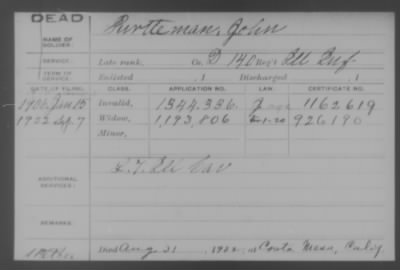 DEAD
NAME OF SOLDIER: John
SERVICE: Late rank, Co. D 140 Reg't Ill Inf
TERM OF SERVICE: Enlisted , 1 Discharged , 1
DATE OF FILING. CLASS. APPLICATION NO. LAW. CERTIFICATE NO.
Jan 15 Invalid, 1344,336 1162619
1922 Sep 7 Widow, 1,193,806 926190
Minor,
ADDITIONAL SERVICES: Cav
REMARKS:
Died Aug 21, 1922, at Costa Mesa, Calif